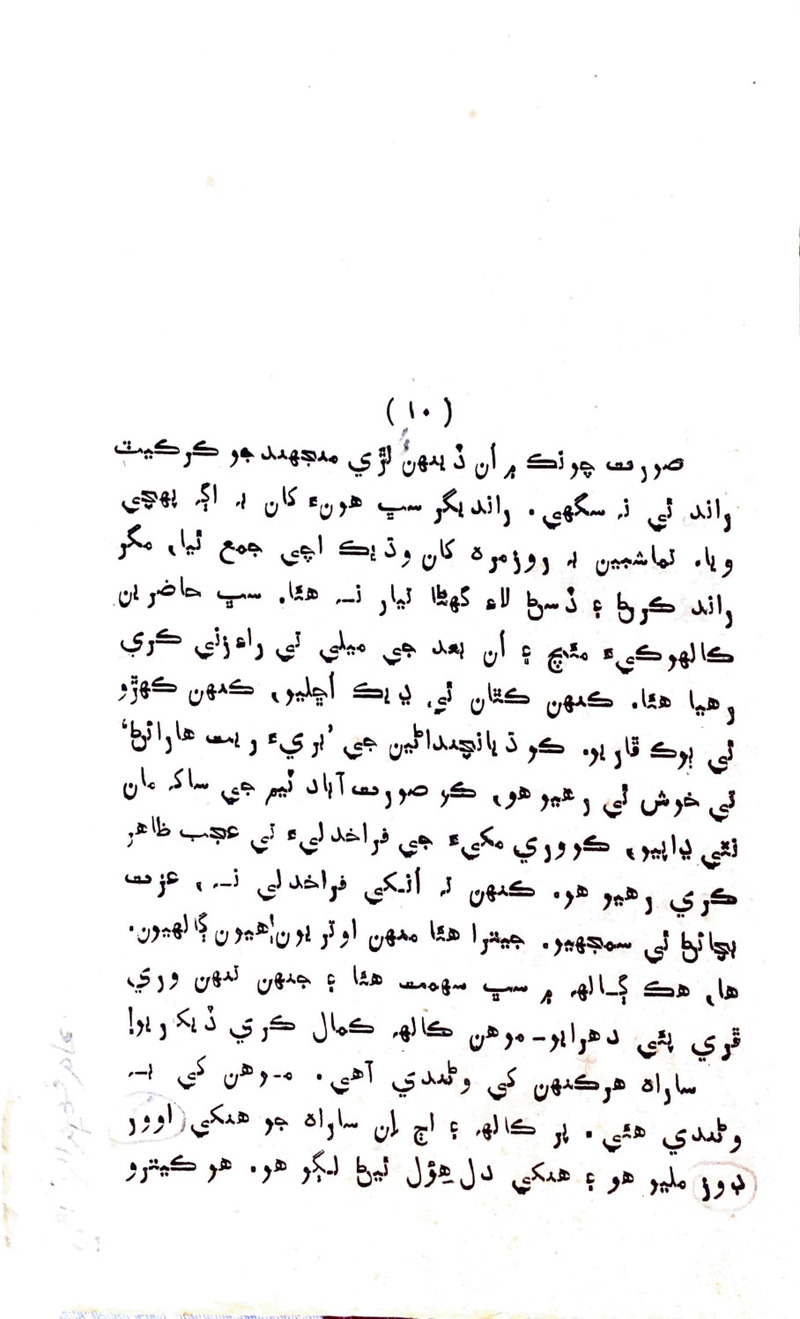 ( ۱۰ )
صورت چونڪ ۾ اُن ڏينهن لڙي منجهند جو ڪرڪيٽ
راند ٿي نہ سگهي. رانديگر سڀ هونءَ کان بہ اڳہ پهچي
ويا. تماشبين بہ روزمرہ کان وڌيڪ اچي جمع ٿيا، مگر
راند ڪرڻ ۽ ڏسڻ لاءِ گهڻا تيار نہ هئا. سڀ حاضرين
ڪالهوڪيءَ مئچ ۽ اُن بعد جي ميلي تي راءِزني ڪري
رهيا هئا. ڪنهن ڪٿان ٿي ڍيڪ اُڇليو، ڪنهن ڪهڙو
ٿي ٻوڪ ڦاريو. ڪو ڌيانچنداڻين جي ’بريءَ ريت هارائڻ‘
تي خوش ٿي رهيو هو، ڪو صورت آباد ٽيم جي ساک مان
نٿي ڍاپيو، ڪو وري مکيءَ جي فراخدليءَ تي عجب ظاهر
ڪري رهيو هو. ڪنهن تہ اُنکي فراخدلي نہ، عزت
بچائڻ ٿي سمجهيو. جيترا هئا منهن اوتريون هيون ڳالهيون.
ها، هڪ ڳالهہ ۾ سڀ سهمت هئا ۽ جنهن تنهن وري
ڦري پئي دهرايو-موهن ڪالهہ ڪمال ڪري ڏيکاريو!
ساراہ هرڪنهن کي وڻندي آهي. موهن کي بہ
وڻندي هئي. پر ڪالهہ ۽ اڄ اِن ساراہ جو هنکي اوور
ڊوز مليو هو ۽ هنکي دل هِوَل ٿيڻ لڳو هو. هو ڪيترو